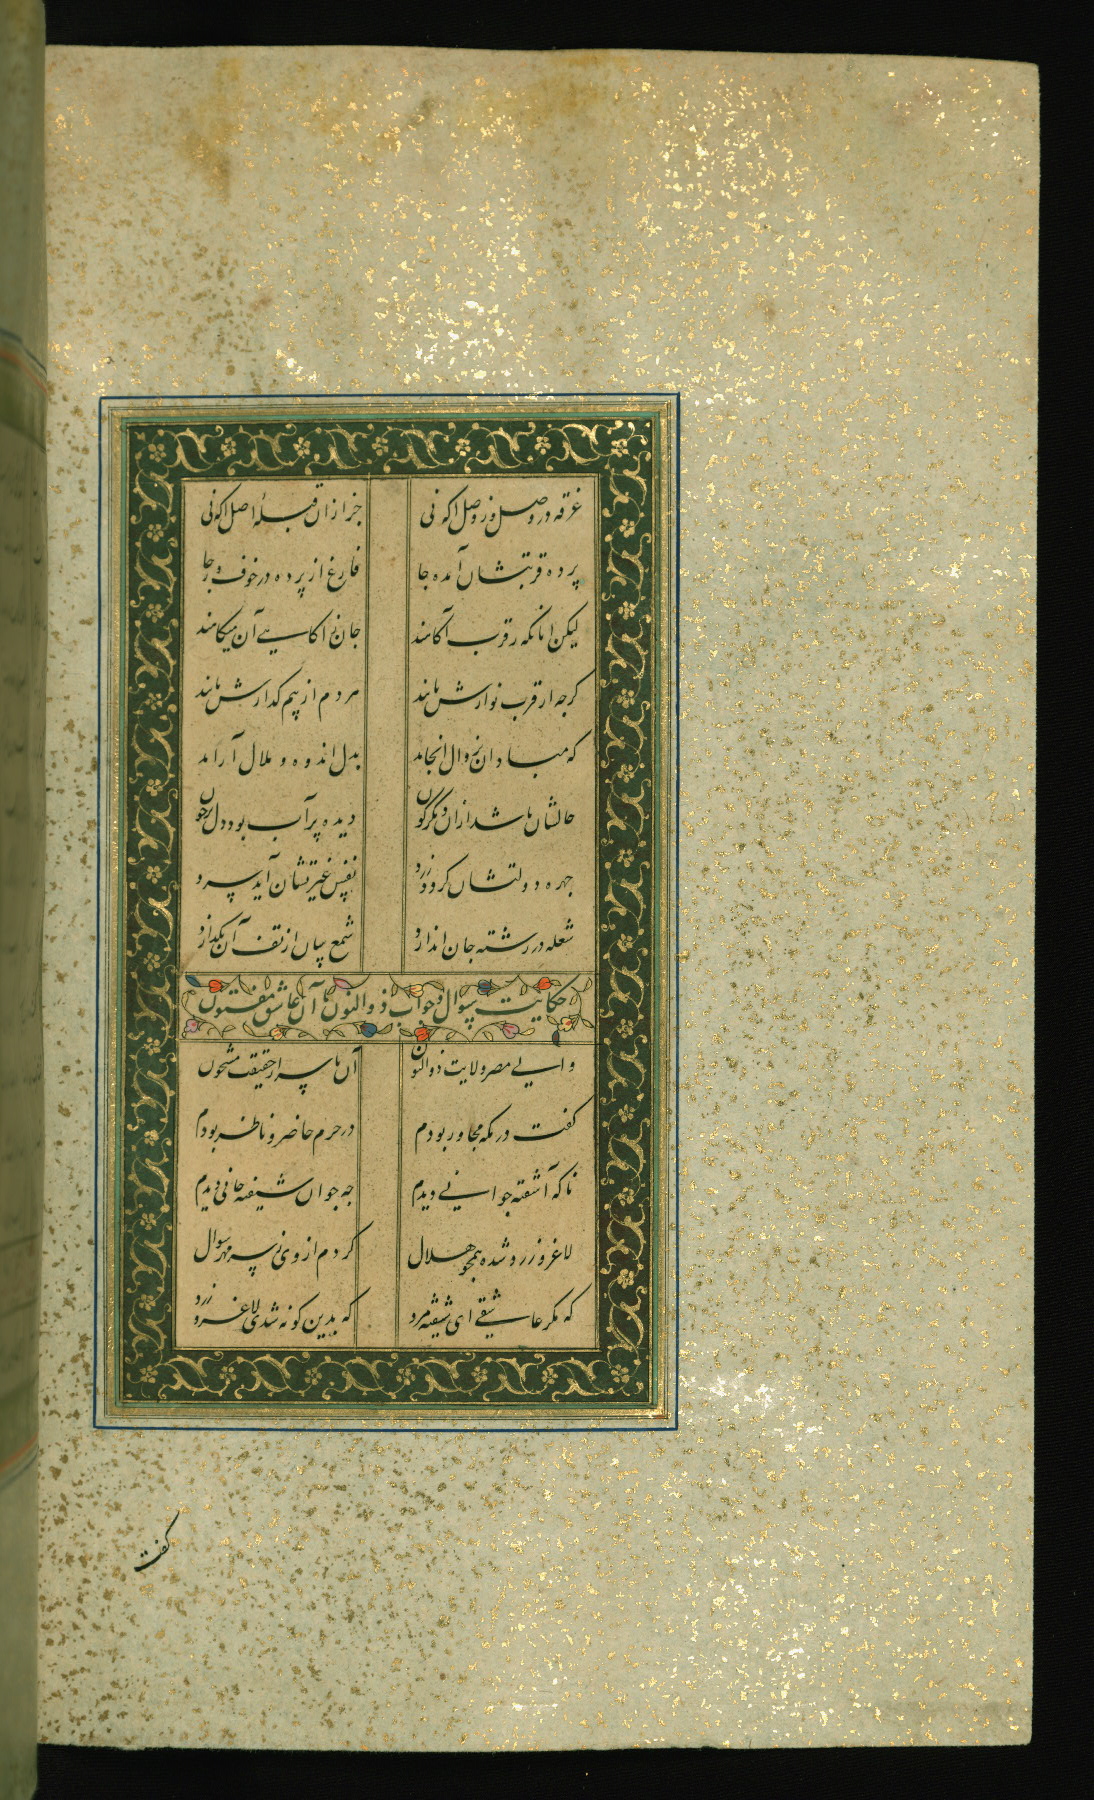 غرقه در وصل و ز وصل آکه نی جز ازان قبلهٔ اصل آکه نی
پرده قربتشان آمده جا فارغ از پرده در خوف و رجا
لیکن انانکه ز قرب آکاهند جان آکاهی آن میکاهند
کرجه از قرب نوازش یابند هر دم از بیم کدازش یابند
که مبادا آن بزوال انجامد بدل اندوه و ملال آرامد
حالشان باشد ازان دیکرکون دیده پر آب بود دل پر خون
جهره دولتشان کردد زرد نفس غیرتشان آید سرد
شعله در رشته جان اندازد شمع سان از تف آن بکدازد
حکایت سؤال و جواب ذوالنون با آن عاشق مفتون
والی مصر ولایت ذوالنون آن باسرار حقیقت مشحون
کفت در مکه مجاور بودم در حرم حاضر و ناظر بودم
ناکه آشفته جوانی دیدم جه جوان شیفته جانی دیدم
لاغر و زرد شده همجو هلال کردم از وی ز سر مهر سوال
که مکر عاشقی ای شیفته مرد که بدین کونه شدی لاغر و زرد
کفت